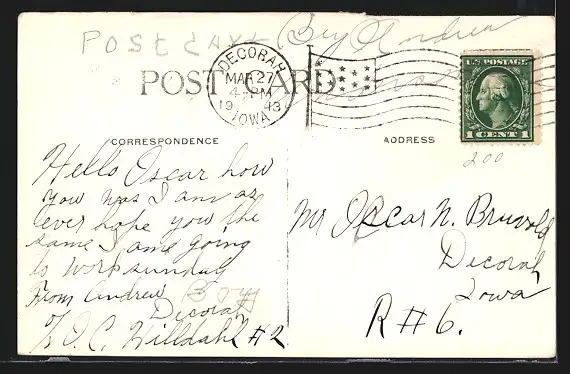 POST CARD Bey Andrew
POST CARD
DECORAH
MAR 27
4 PM
19 13
IOWA
U.S. POSTAGE
1 CENT 1
200
CORRESPONDENCE
ADDRESS
Hello Oscar how
you was I am as
ever hope you the
same I ame going
to work sunday
From Andrew Boy
Decorah
℅ O.C. Willdahl #2
Mr Oscar N. Bruvold
Decorah
Iowa
R # 6.